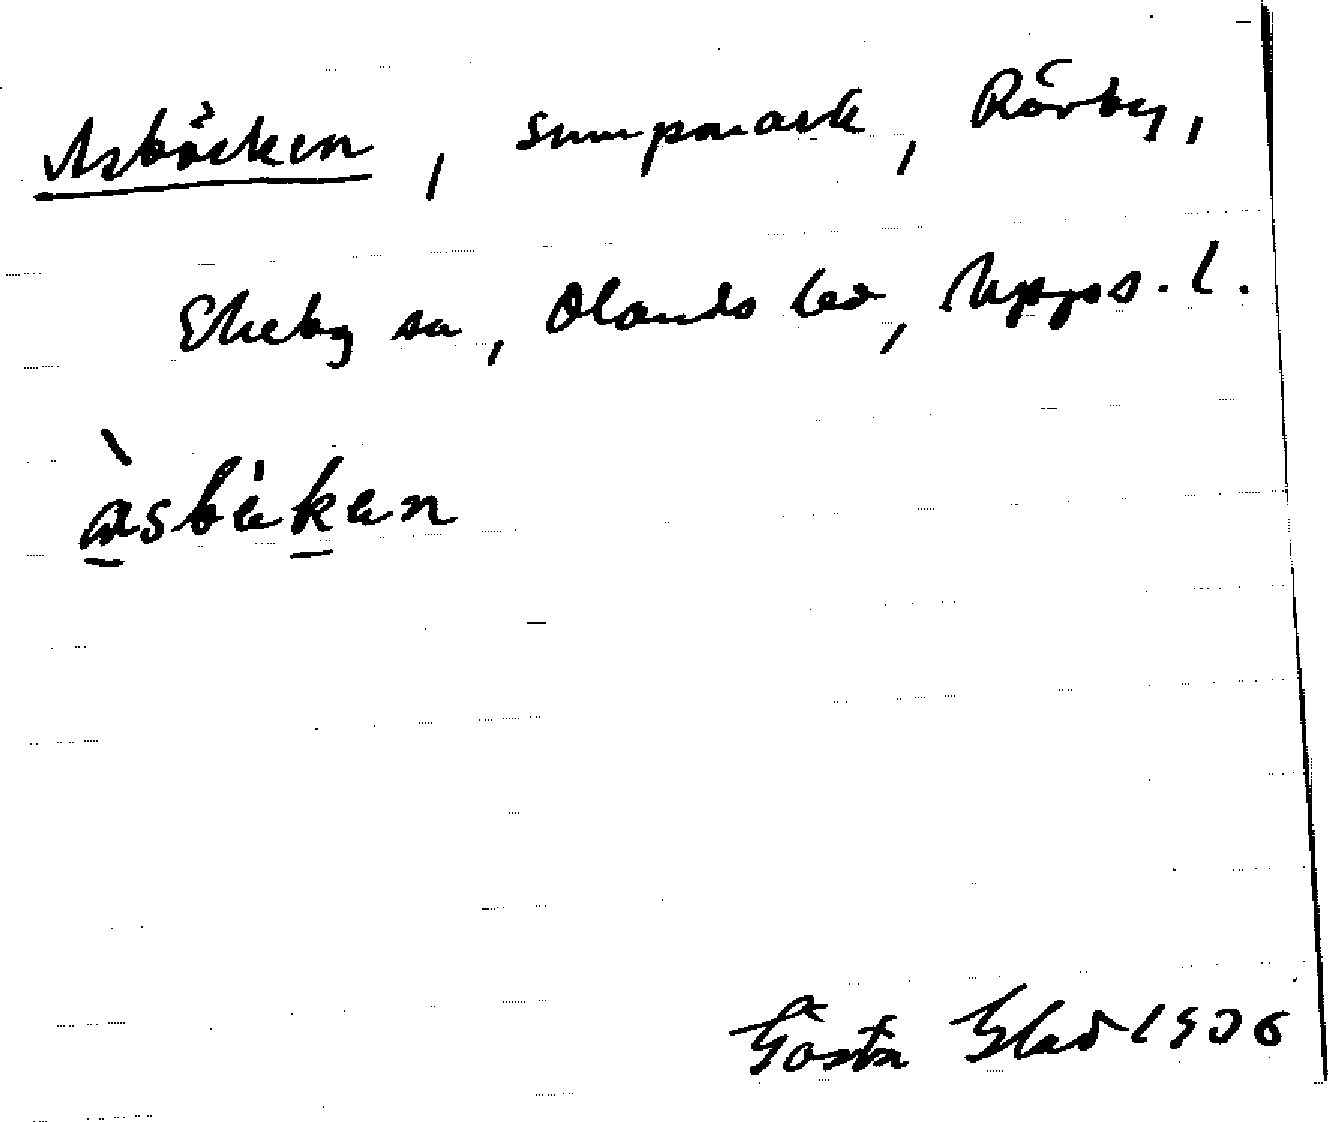 Asbäcken, sumpmark, Rörby,
Ekeby sn, Olands hd, Upps. l.
àsbäken
Gösta Blad 1906